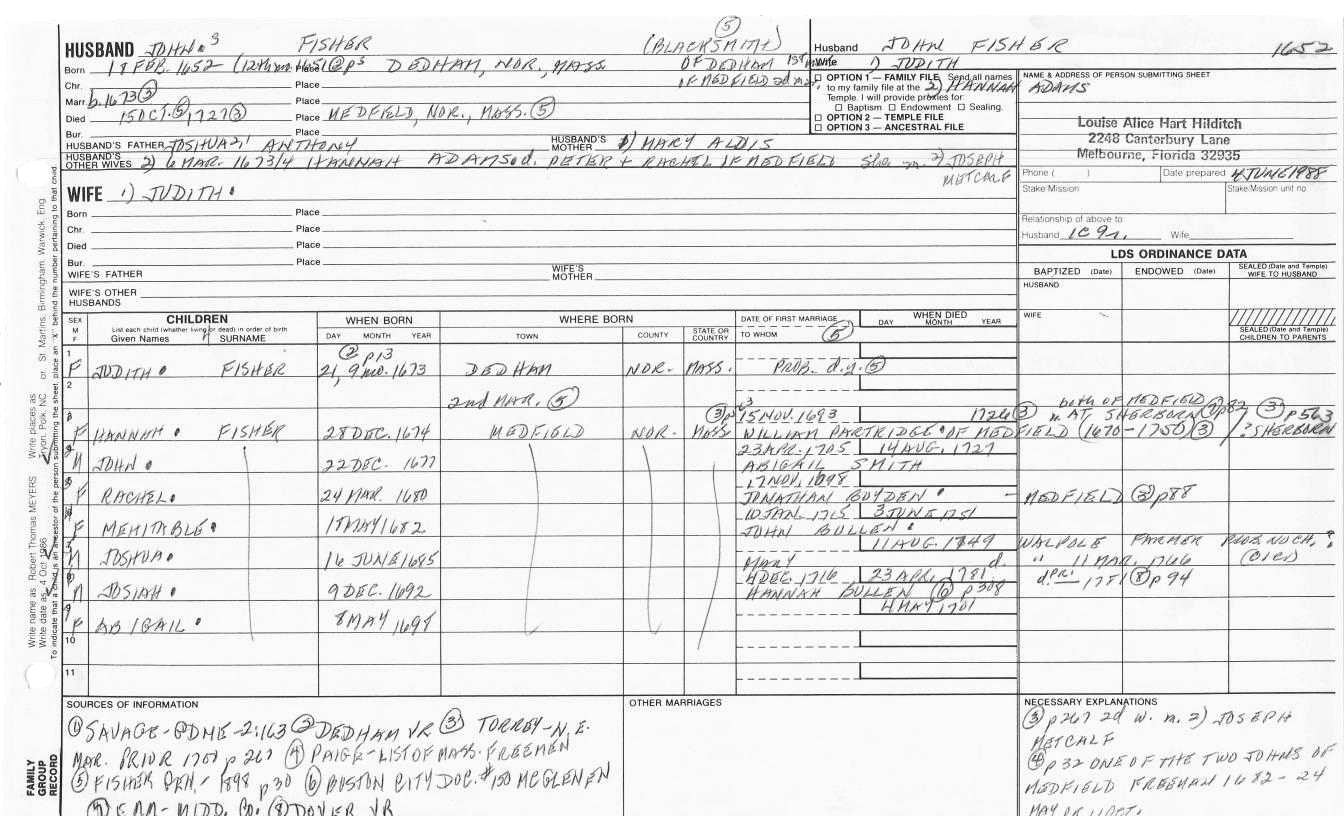 (5)
HUSBAND JOHN 3 FISHER (BLACKSMITH)
Husband JOHN FISHER 1652
Born 18 FEB. 1652 Place DEDHAM, NOR., MASS OF DEDHAM 1st
Wife 1) JUDITH
Chr. Place OF MEDFIELD 2d
2) HANNAH ADAMS
Marr. 1673 (2) Place
Died 15 OCT. (5) 1727 (3) Place MEDFIELD, NOR., MASS. (5)
Bur. Place
HUSBAND'S FATHER JOSHUA 2, ANTHONY
HUSBAND'S MOTHER 1) MARY ALDIS
HUSBAND'S OTHER WIVES 2) 6 MAR. 1673/4 HANNAH ADAMS d. PETER + RACHEL OF MEDFIELD She m. 2) JOSEPH
METCALF
OPTION 1 — FAMILY FILE Send all names
to my family file at the
Temple. I will provide proxies for:
Baptism Endowment Sealing.
OPTION 2 — TEMPLE FILE
OPTION 3 — ANCESTRAL FILE
NAME & ADDRESS OF PERSON SUBMITTING SHEET
Louise Alice Hart Hilditch
2248 Canterbury Lane
Melbourne, Florida 32935
Phone ( ) Date prepared 4 JUNE 1988
Stake/Mission Stake/Mission unit no.
Relationship of above to
Husband 1C 9r. Wife
WIFE 1) JUDITH
Born Place
Chr. Place
Died Place
Bur. Place
WIFE'S FATHER
WIFE'S MOTHER
WIFE'S OTHER HUSBANDS
LDS ORDINANCE DATA
BAPTIZED (Date) ENDOWED (Date) SEALED (Date and Temple) WIFE TO HUSBAND
HUSBAND
WIFE
SEALED (Date and Temple) CHILDREN TO PARENTS
SEX M F
CHILDREN
List each child (whether living or dead) in order of birth
Given Names SURNAME
WHEN BORN
DAY MONTH YEAR
WHERE BORN
TOWN COUNTY STATE OR COUNTRY
DATE OF FIRST MARRIAGE
TO WHOM (5)
WHEN DIED
DAY MONTH YEAR
(2) p13
1 F JUDITH FISHER 21, 9 mo. 1673 DEDHAM NOR. MASS. PROB. d.y. (5)
2
2nd MAR. (5)
both OF MEDFIELD
(3) 15 NOV. 1693 1726 (3) m AT SHERBORN (1) p82 (3) p563
F HANNAH FISHER 28 DEC. 1674 MEDFIELD NOR. MASS WILLIAM PARTRIDGE OF MEDFIELD (1670-1750) (3) ? SHERBORN
23 APR. 1705 14 AUG. 1727
M JOHN 22 DEC. 1677 ABIGAIL SMITH
17 NOV. 1698
F RACHEL 24 MAR. 1680 JONATHAN BOYDEN - MEDFIELD (3) p88
10 JAN. 1715 3 JUNE 1751
F MEHITABLE 18 MAY 1682 JOHN BULLEN
11 AUG. 1749 WALPOLE FARMER PROB. NOCH. ?
M JOSHUA 16 JUNE 1685 MARY d. " 11 MAR. 1766
4 DEC. 1716 23 APR. 1781 d. PRI. 1781 (8) p 94
M JOSIAH 9 DEC. 1692 HANNAH BULLEN (6) p 308
4 MAY 1701
F ABIGAIL 8 MAY 1698
10
11
SOURCES OF INFORMATION
(1) SAVAGE-GDNE-2:163 (2) DEDHAM VR (3) TORREY-N.E.
MAR. PRIOR 1701 p 267 (4) PAIGE-LIST OF MASS. FREEMEN
(5) FISHER GEN.- 1898 p 30 (6) BOSTON CITY DOC. #150 MCGLENEN
MIDD. CO. (8) DOVER VR
OTHER MARRIAGES
NECESSARY EXPLANATIONS
(3) p 267 2d w. m. 2) JOSEPH
METCALF
(4) p 32 ONE OF THE TWO JOHNS OF
MEDFIELD FREEMAN 1682 - 24
MAY
Write name as: Robert Thomas MEYERS Write places as: Tryon, Polk, NC or St. Martins, Birmingham, Warwick, Eng.
Write date as: 4 Oct 1896
To indicate that a child is an ancestor of the person submitting the sheet, place an "X" behind the number pertaining to that child.
FAMILY GROUP RECORD